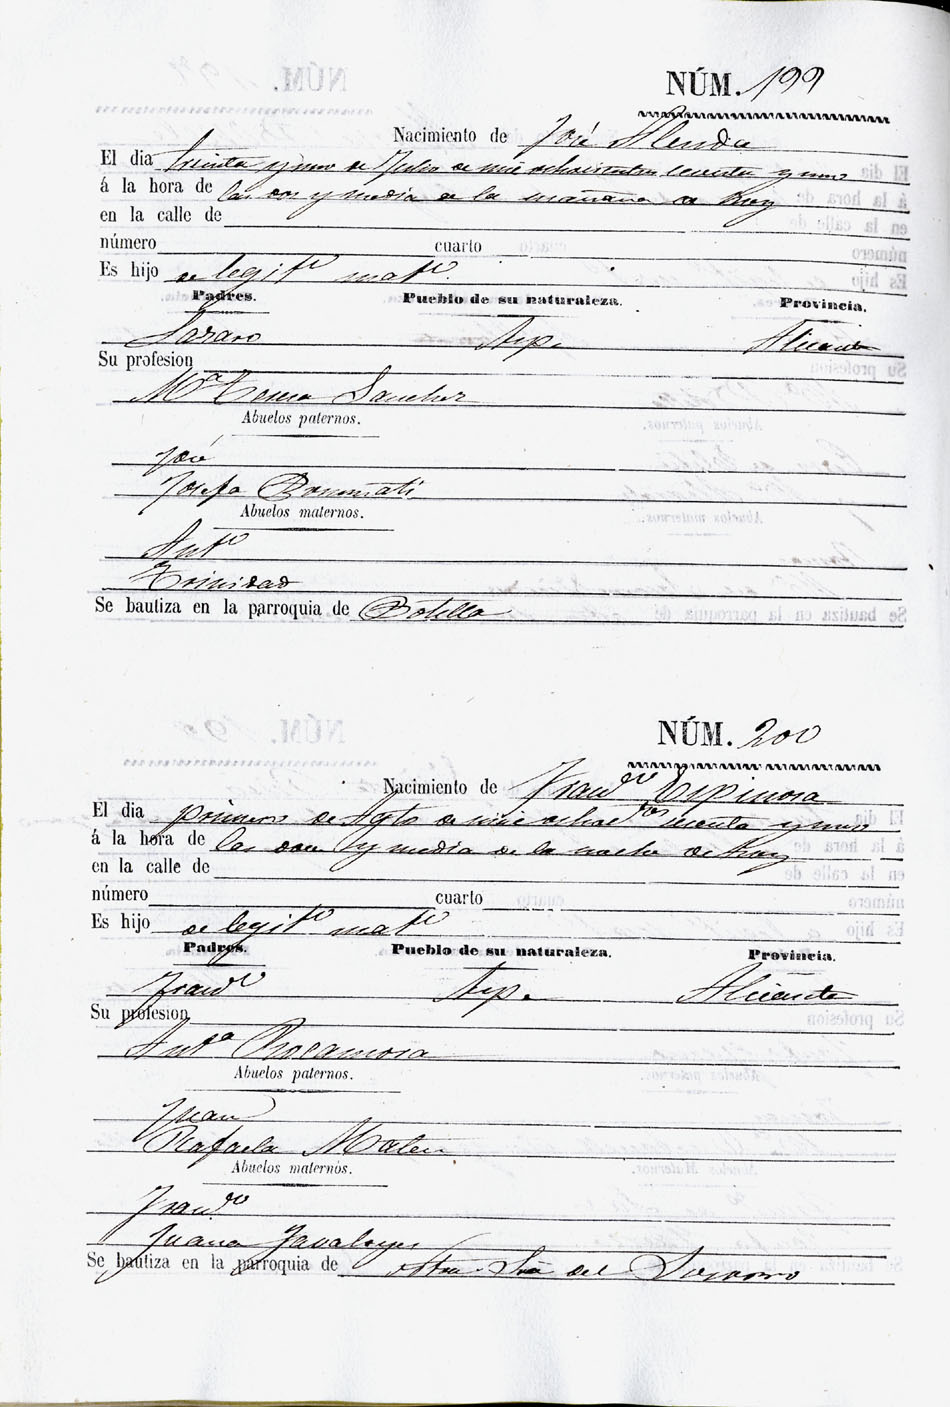 NÚM. 199
Nacimiento de José Alenda
El dia treinta y uno de Julio de mil ochocientos sesenta y uno
á la hora de las dos y media de la mañana de hoy
en la calle de
número cuarto
Es hijo de legitº matº
Padres. Pueblo de su naturaleza. Provincia.
Lazaro Asp. Alicante
Su profesion
Mª Teresa Sanchez
Abuelos paternos.
José
Josefa Bonmati
Abuelos maternos.
Antº
Trinidad
Se bautiza en la parroquia de Botella
NÚM. 200
Nacimiento de Francº Espinosa
El dia primero de Agto de mil ochocº sesenta y uno
á la hora de las doce y media de la noche de hoy
en la calle de
número cuarto
Es hijo de legitº matº
Padres. Pueblo de su naturaleza. Provincia.
Francº Asp. Alicante
Su profesion
Antª Rocamora
Abuelos paternos.
Juan
Rafaela
Abuelos maternos.
Francº
Juana Javaloyes
Se bautiza en la parroquia de Ntra Sra del Socorro